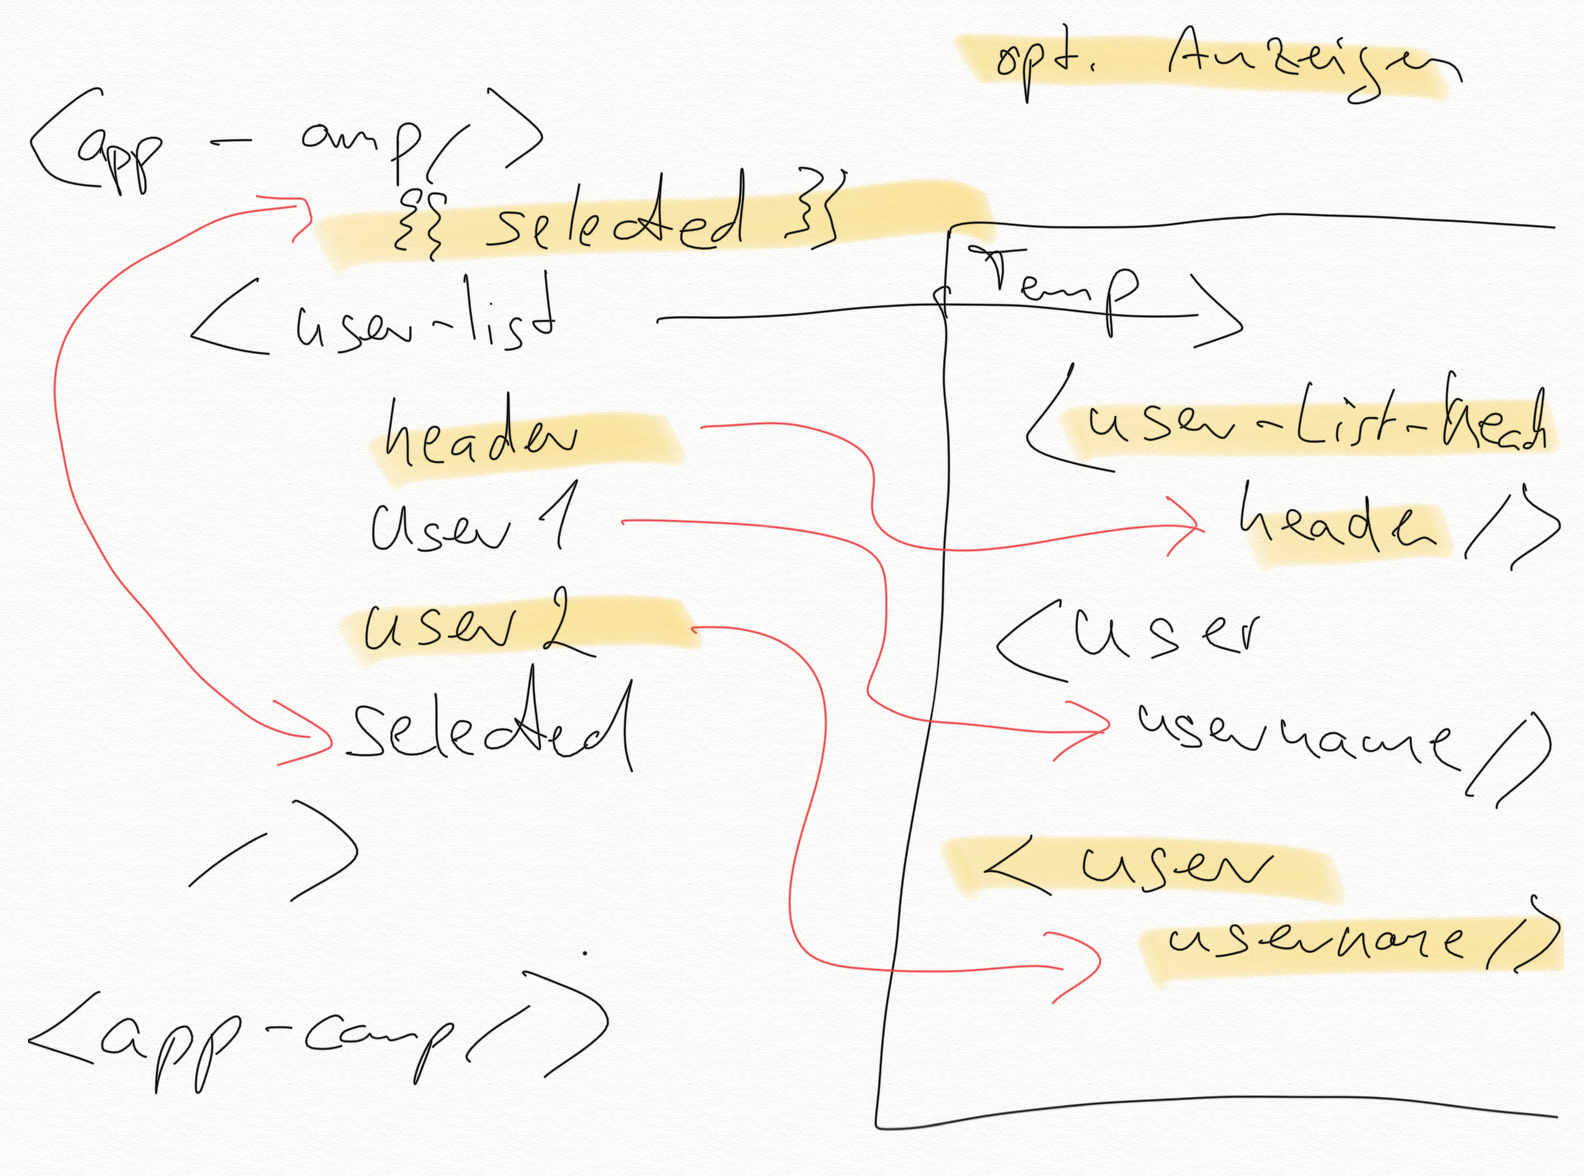 opt. Anzeigen
<app - amp/>
{{ selected }}
<user-list
header
user 1
user 2
selected
/>
<app-comp/>
Temp
<user-List-head
header />
<user
username />
<user
username />